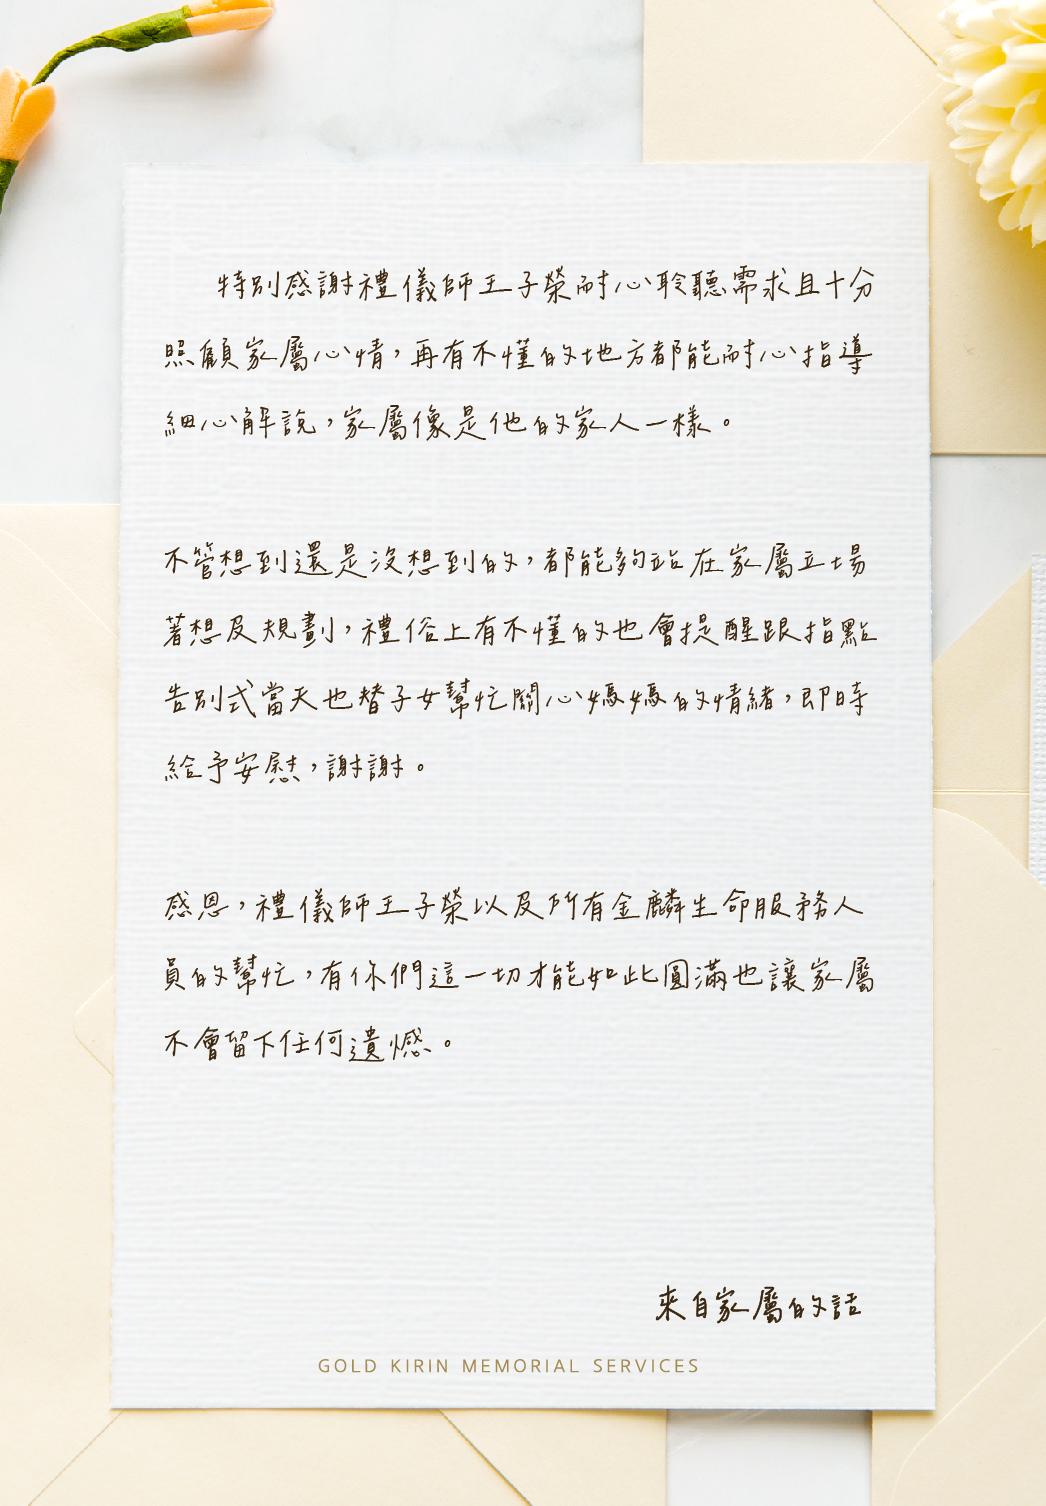 特別感謝禮儀師王子榮耐心聆聽需求且十分
照顧家屬心情，再有不懂的地方都能耐心指導
細心解說，家屬像是他的家人一樣。
不管想到還是沒想到的，都能夠站在家屬立場
著想及規劃，禮俗上有不懂的也會提醒跟指點
告別式當天也替子女幫忙關心媽媽的情緒，即時
給予安慰，謝謝。
感恩，禮儀師王子榮以及所有金麟生命服務人
員的幫忙，有你們這一切才能如此圓滿也讓家屬
不會留下任何遺憾。
來自家屬的話
GOLD KIRIN MEMORIAL SERVICES